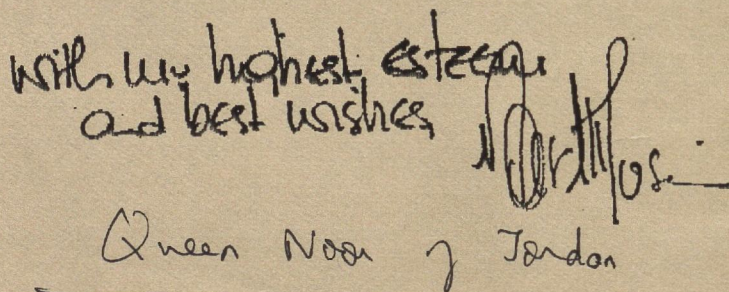 with my highest esteem
and best wishes
Noor Al Hussein
Queen Noor of Jordan